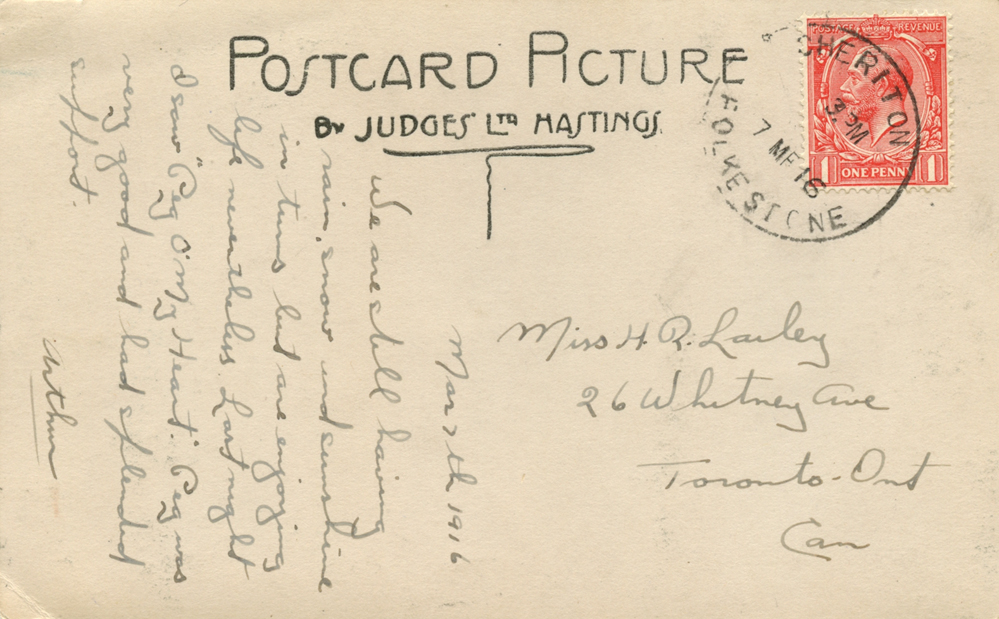 POSTCARD PICTURE
BY JUDGES' LTD HASTINGS.
POSTAGE REVENUE
1 ONE PENNY 1
CHERITON
3.15 PM
7 MR 16
FOLKESTONE
Mar 7th 1916
We are still having
rain, snow and sunshine
in turns but are enjoying
life nevertheless. Last night
I saw "Peg O' My Heart". Peg was
very good and had splended
support.
Arthur
Miss H. R. Lailey
26 Whitney Ave
Toronto - Ont
Can